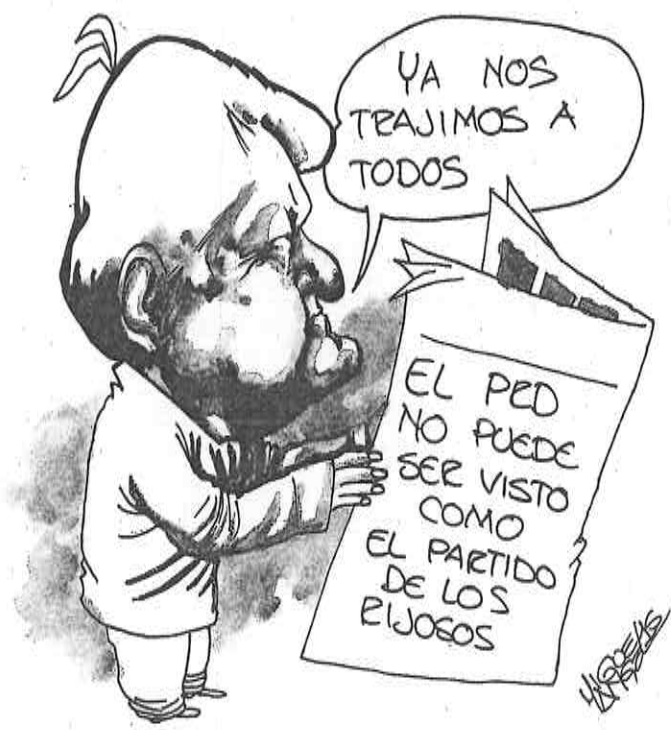 YA NOS
TRAJIMOS A
TODOS
EL PRD
NO PUEDE
SER VISTO
COMO
EL PARTIDO
DE LOS
RIJOSOS